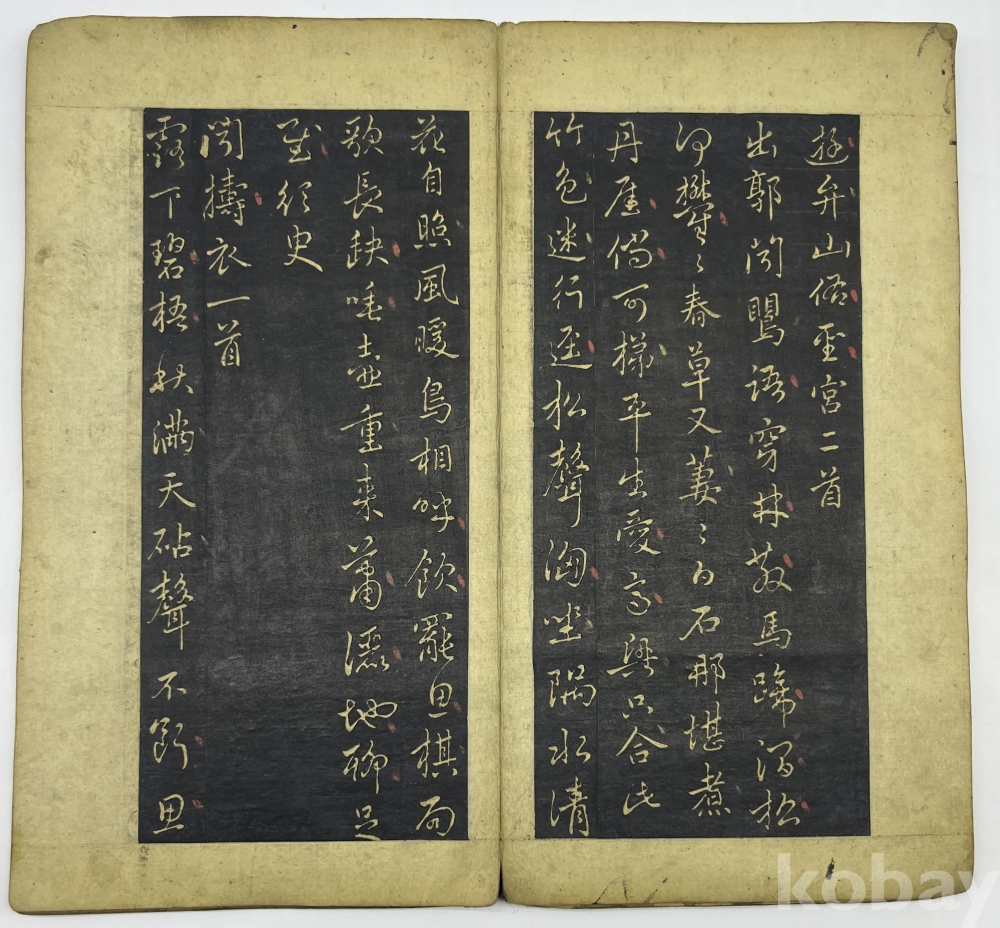 遊弁山佑聖宮二首
出郭聞鸎語穿林散馬蹄澗松
何鬱々春草又萋々白石那堪煮
丹崖倘可梯平生愛高興只合此
竹色迷行逕松聲洶坐隅水清
花自照風暖鳥相呼飲罷思棋局
歌長缺唾壺重來蕭灑地聊足
慰須臾
聞擣衣一首
露下碧梧秋滿天砧聲不斷思
kobay